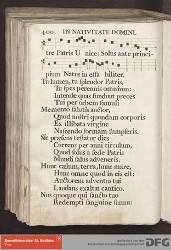 400 IN NATIVITATE DOMINI.
tre Patris U nice: Solus ante princi-
pium Natus in effa biliter.
Tu lumen, tu splendor Patris,
Tu spes perennis omnium:
Intende quas fundunt preces
Tui per orbem famuli
Memento salutis auctor,
Quod nostri quondam corporis
Ex illibata virgine
Nascendo formam sumpseris.
Sic præsens testatur dies
Currens per anni circulum,
Quod solus a sede Patris
Mundi salus adveneris.
Hunc cælum, terra, hunc mare,
Hunc omne quod in eis est:
Auctorem adventus tui
Laudans exultat cantico.
Nos quoque qui sancto tuo
Redempti sanguine sumus: